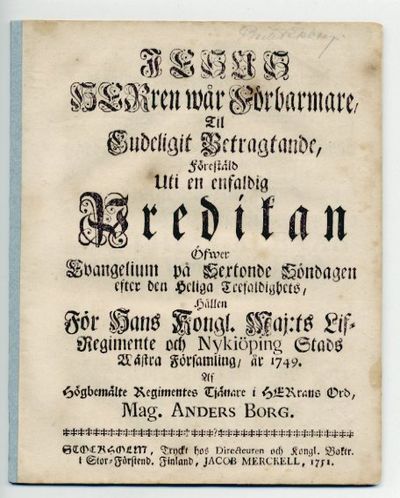 JESUS
HERren wår Förbarmare,
Til
Gudeligit Betragtande,
Föreståld
Uti en enfaldig
Predikan
Öfwer
Evangelium på Sextonde Söndagen
efter den Heliga Trefaldighets,
Hållen
För Hans Kongl. Maj:ts Lif-
Regimente och Nykiöping Stads
Wästra Församling, år 1749.
Af
Högbemälte Regimentes Tjänare i HERrans Ord,
Mag. ANDERS BORG.
STOCKHOLM, Tryckt hos Directeuren och Kongl. Boktr.
i Stor-Förstend. Finland, JACOB MERCKELL, 1751.